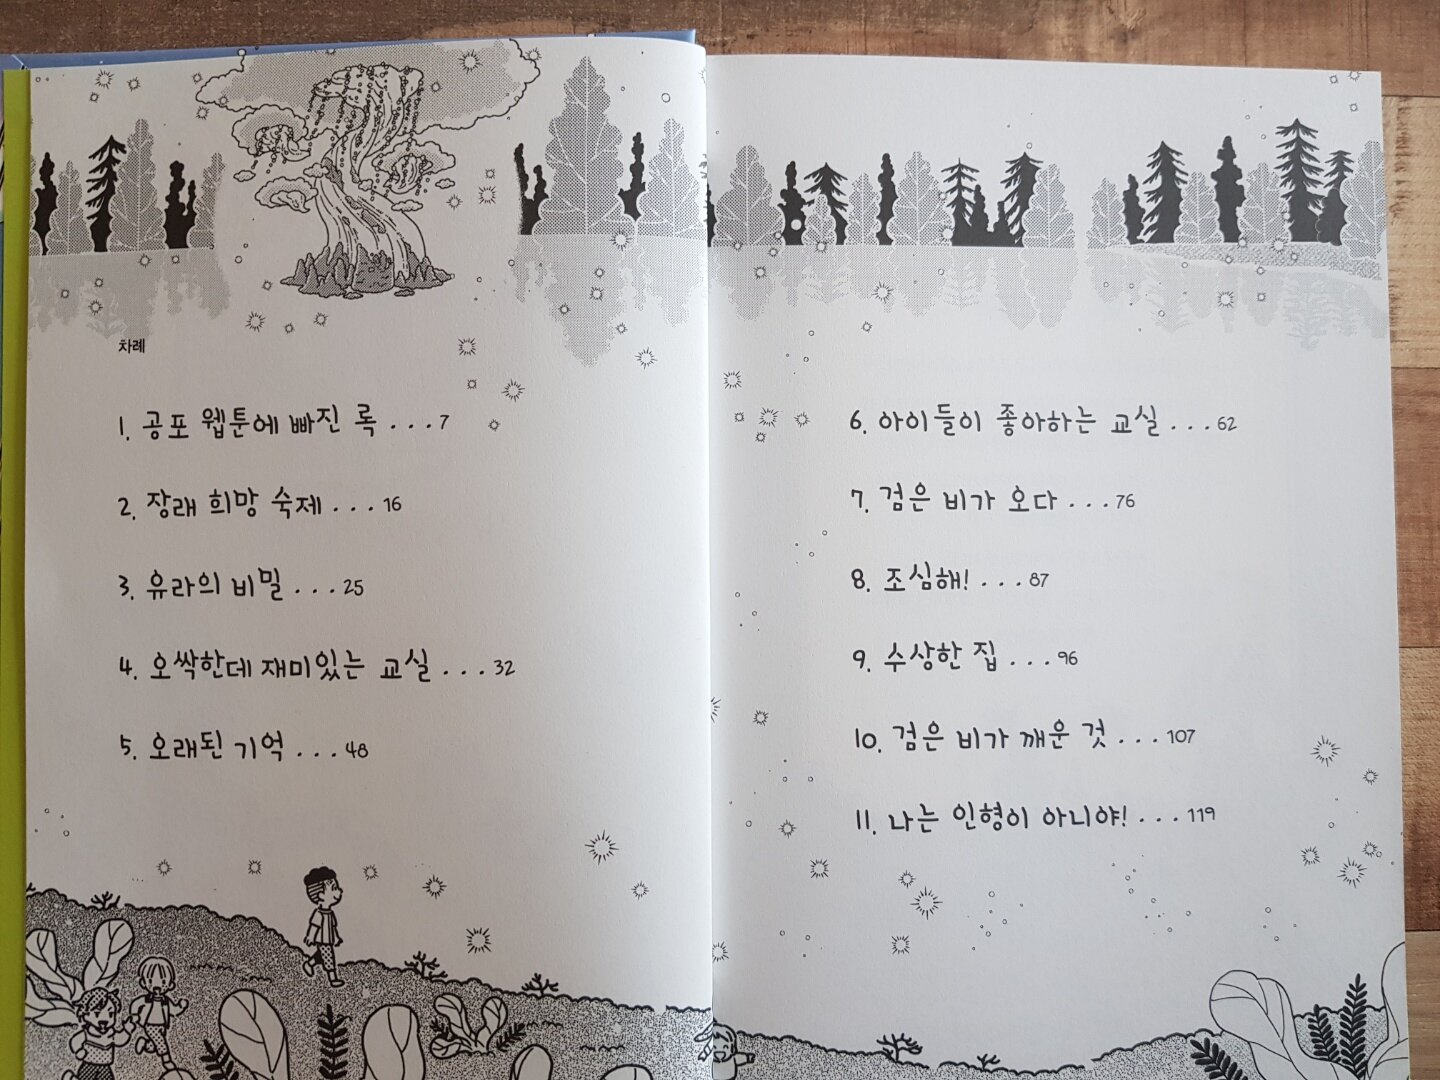 차례
1. 공포 웹툰에 빠진 록 . . . 7
2. 장래 희망 숙제 . . . 16
3. 유라의 비밀 . . . 25
4. 오싹한데 재미있는 교실 . . . 32
5. 오래된 기억 . . . 48
6. 아이들이 좋아하는 교실 . . . 62
7. 검은 비가 오다 . . . 76
8. 조심해! . . . 87
9. 수상한 집 . . . 96
10. 검은 비가 깨운 것 . . . 107
11. 나는 인형이 아니야! . . . 119